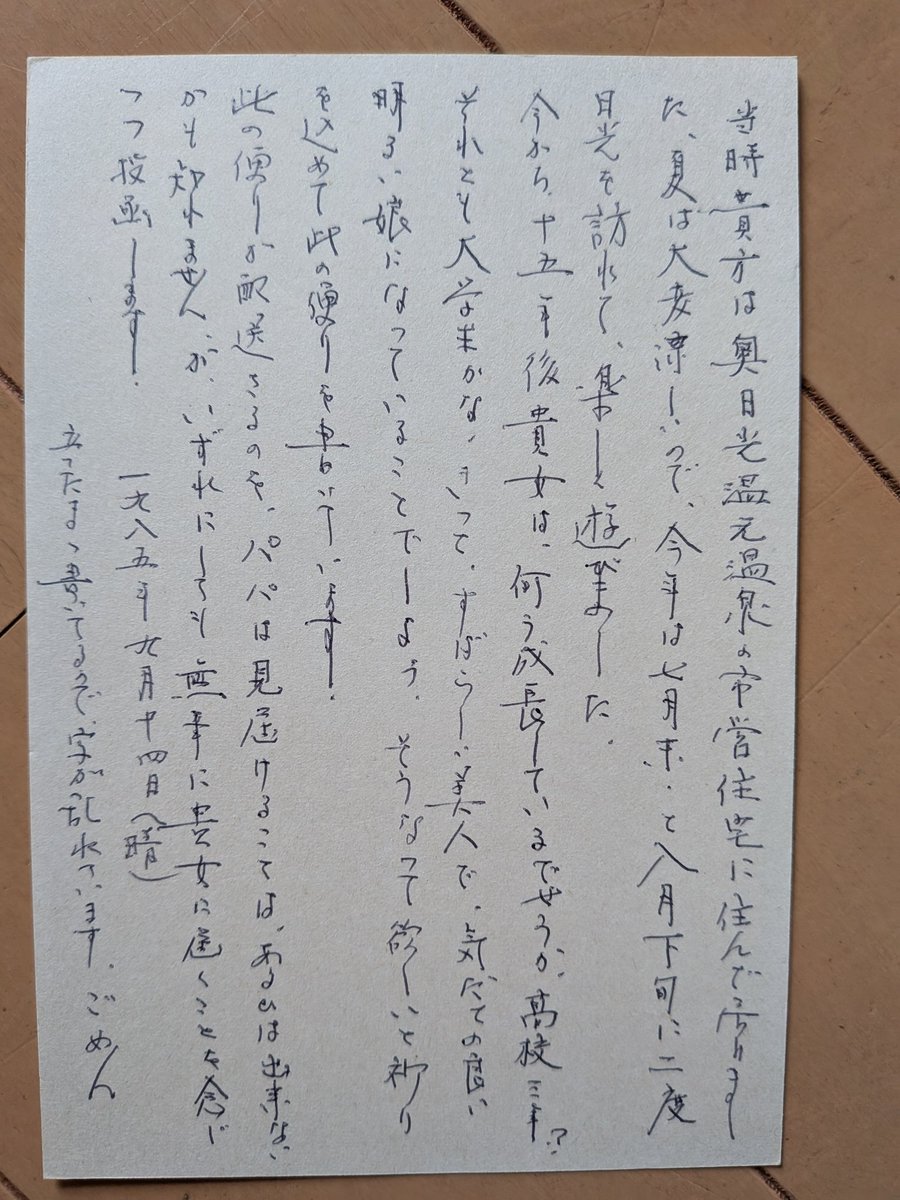 当時貴方は奥日光温元温泉の市営住宅に住んで居ります
た、夏は大変涼しいので、今年は七月末と八月下旬に二度
日光を訪れて、楽しく遊びました.
今から、十五年後貴女は、何う成長しているでせうか、高校三年?
それとも大学生かな、きって、すばらしい美人で、気だての良い
明るい娘になっていることでしよう. そうなって欲しいと祈り
を込めて此の便りを書いています.
此の便りが配送さるのを、パパは見届けることは、あるひは出来ない
かも知れません、が、いずれにしても無事に貴女に届くことを念じ
つつ投函します.
一九八五年九月十四日(晴)
立ったまゝ書いてるので、字が乱れています. ごめん